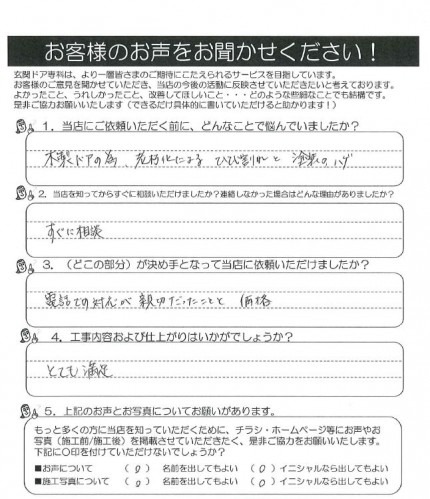 お客様のお声をお聞かせください！
玄関ドア専科は、より一層皆さまのご期待にこたえられるサービスを目指しています。
お客様のご意見を聞かせていただき、当店の今後の活動に反映させていただきたいと考えております。
よかったこと、うれしかったこと、改善してほしいこと・・・どのような些細なことでも結構です。
是非ご協力お願いいたします（できるだけ具体的に書いていただけると助かります！）
1．当店にご依頼いただく前に、どんなことで悩んでいましたか？
木製ドアの為 老朽化による ひび割れと 塗装のハゲ
2．当店を知ってからすぐに相談いただけましたか？連絡しなかった場合はどんな理由がありましたか？
すぐに相談
3．（どこの部分）が決め手となって当店に依頼いただけましたか？
電話での対応が 親切だったことと 価格
4．工事内容および仕上がりはいかがでしょうか？
とても満足
5．上記のお声とお写真についてお願いがあります。
もっと多くの方に当店を知っていただくために、チラシ・ホームページ等にお声やお
写真（施工前/施工後）を掲載させていただきたく、是非ご協力をお願いいたします。
下記に〇印を付けていただけないでしょうか？
■お声について （〇）名前を出してもよい （〇）イニシャルなら出してもよい
■施工写真について（〇）名前を出してもよい （〇）イニシャルなら出してもよい